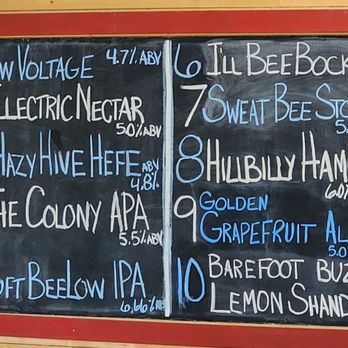 W VOLTAGE 4.7% ABV
ELECTRIC NECTAR
5.0% ABV
HAZY HIVE HEFE ABV
4.8%
THE COLONY APA
5.5% ABV
OFT BEELOW IPA
6.66%
6 I'LL BEE BOCK
7 SWEAT BEE STO
5.
8 HILLBILLY HAM
6.0
9 GOLDEN
GRAPEFRUIT AL
5.0
10 BAREFOOT BUZ
LEMON SHAND